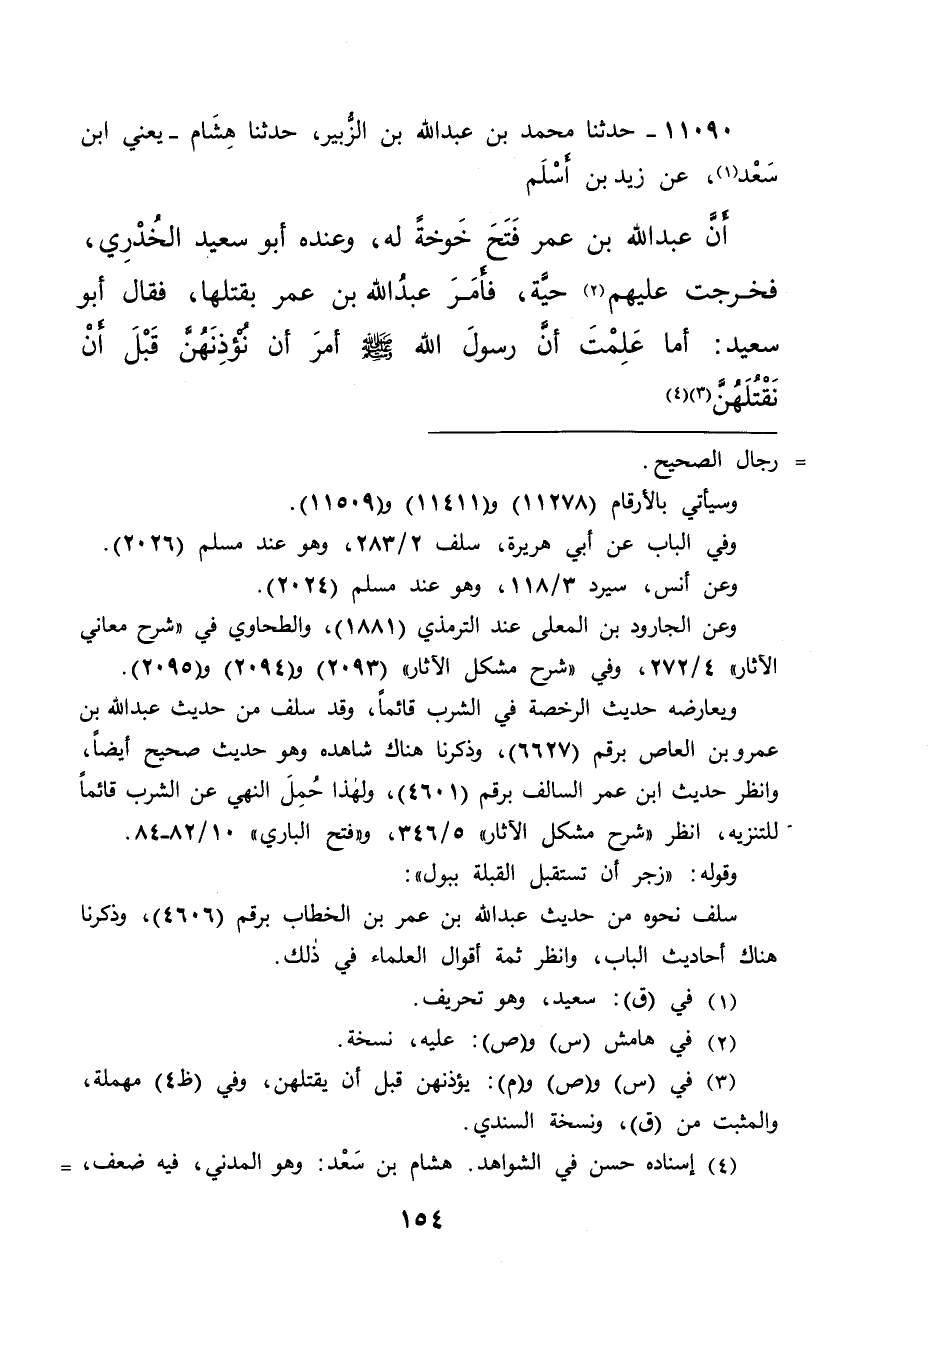 ١١٠٩٠ - حدثنا محمد بن عبدالله بن الزُّبير، حدثنا هِشَام - يعني ابن
سَعْد(١)، عن زيد بن أَسْلَم
أَنَّ عبدالله بن عمر فَتَحَ خَوخةً له، وعنده أبو سعيد الخُدْرِي،
فخرجت عليهم(٢) حيَّة، فأَمَرَ عبدُالله بن عمر بقتلها، فقال أبو
سعيد: أما عَلِمْتَ أنَّ رسولَ الله ﷺ أمرَ أن نُؤْذِنَهُنَّ قَبْلَ أَنْ
نَقْتُلَهُنَّ(٣)(٤)
= رجال الصحيح.
وسيأتي بالأرقام (١١٢٧٨) و(١١٤١١) و(١١٥٠٩).
وفي الباب عن أبي هريرة، سلف ٢٨٣/٢، وهو عند مسلم (٢٠٢٦).
وعن أنس، سيرد ١١٨/٣، وهو عند مسلم (٢٠٢٤).
وعن الجارود بن المعلى عند الترمذي (١٨٨١)، والطحاوي في «شرح معاني
الآثار» ٢٧٢/٤، وفي «شرح مشكل الآثار» (٢٠٩٣) و(٢٠٩٤) و(٢٠٩٥).
ويعارضه حديث الرخصة في الشرب قائماً، وقد سلف من حديث عبدالله بن
عمرو بن العاص برقم (٦٦٢٧)، وذكرنا هناك شاهده وهو حديث صحيح أيضاً،
وانظر حديث ابن عمر السالف برقم (٤٦٠١)، ولهٰذا حُمِلَ النهي عن الشرب قائماً
للتنزيه، انظر «شرح مشكل الآثار» ٣٤٦/٥، و«فتح الباري» ٨٢/١٠-٨٤.
وقوله: «زجر أن تستقبل القبلة ببول»:
سلف نحوه من حديث عبدالله بن عمر بن الخطاب برقم (٤٦٠٦)، وذكرنا
هناك أحاديث الباب، وانظر ثمة أقوال العلماء في ذٰلك.
(١) في (ق): سعيد، وهو تحريف.
(٢) في هامش (س) و(ص): عليه، نسخة.
(٣) في (س) و(ص) و(م): يؤذنهن قبل أن يقتلهن، وفي (ظ٤) مهملة،
والمثبت من (ق)، ونسخة السندي.
(٤) إسناده حسن في الشواهد. هشام بن سَعْد: وهو المدني، فيه ضعف، =
١٥٤